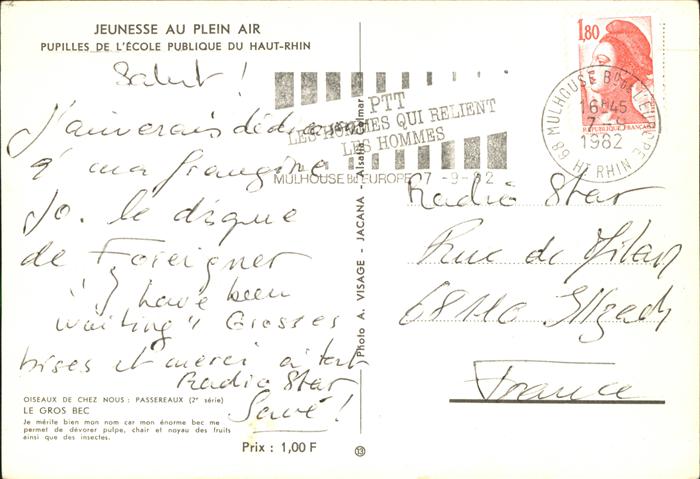 JEUNESSE AU PLEIN AIR
PUPILLES DE L'ÉCOLE PUBLIQUE DU HAUT-RHIN
Salut !
J'aimerais dédicacer
à ma frangine
Jo. le disque
de Foreigner
"I have been
waiting" Grosses
bises et merci à tout
Radio Star
Salut !
OISEAUX DE CHEZ NOUS : PASSEREAUX (2e série)
LE GROS BEC
Je mérite bien mon nom car mon énorme bec me
permet de dévorer pulpe, chair et noyau des fruits
ainsi que des insectes.
Prix : 1,00 F
Photo A. VISAGE - JACANA - Alsatia Colmar
13
PTT
LES HOMMES QUI RELIENT
LES HOMMES
MULHOUSE Bd EUROPE 7 -9-82
1,80
REPUBLIQUE FRANCAISE
68 MULHOUSE Bd DE L'EUROPE HT RHIN
16H45
7-9
1982
Radio Star
Rue de Milan
68110 Illzach
France